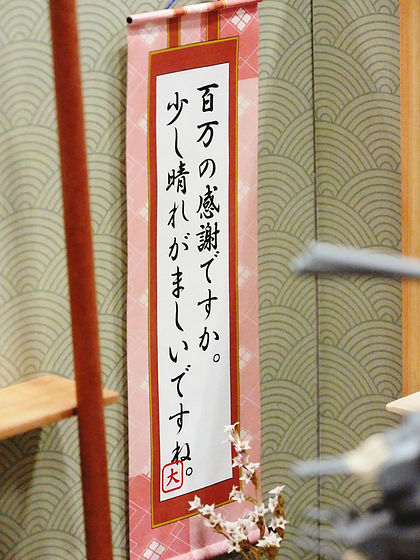 百万の感謝ですか。
少し晴れがましいですね。
大